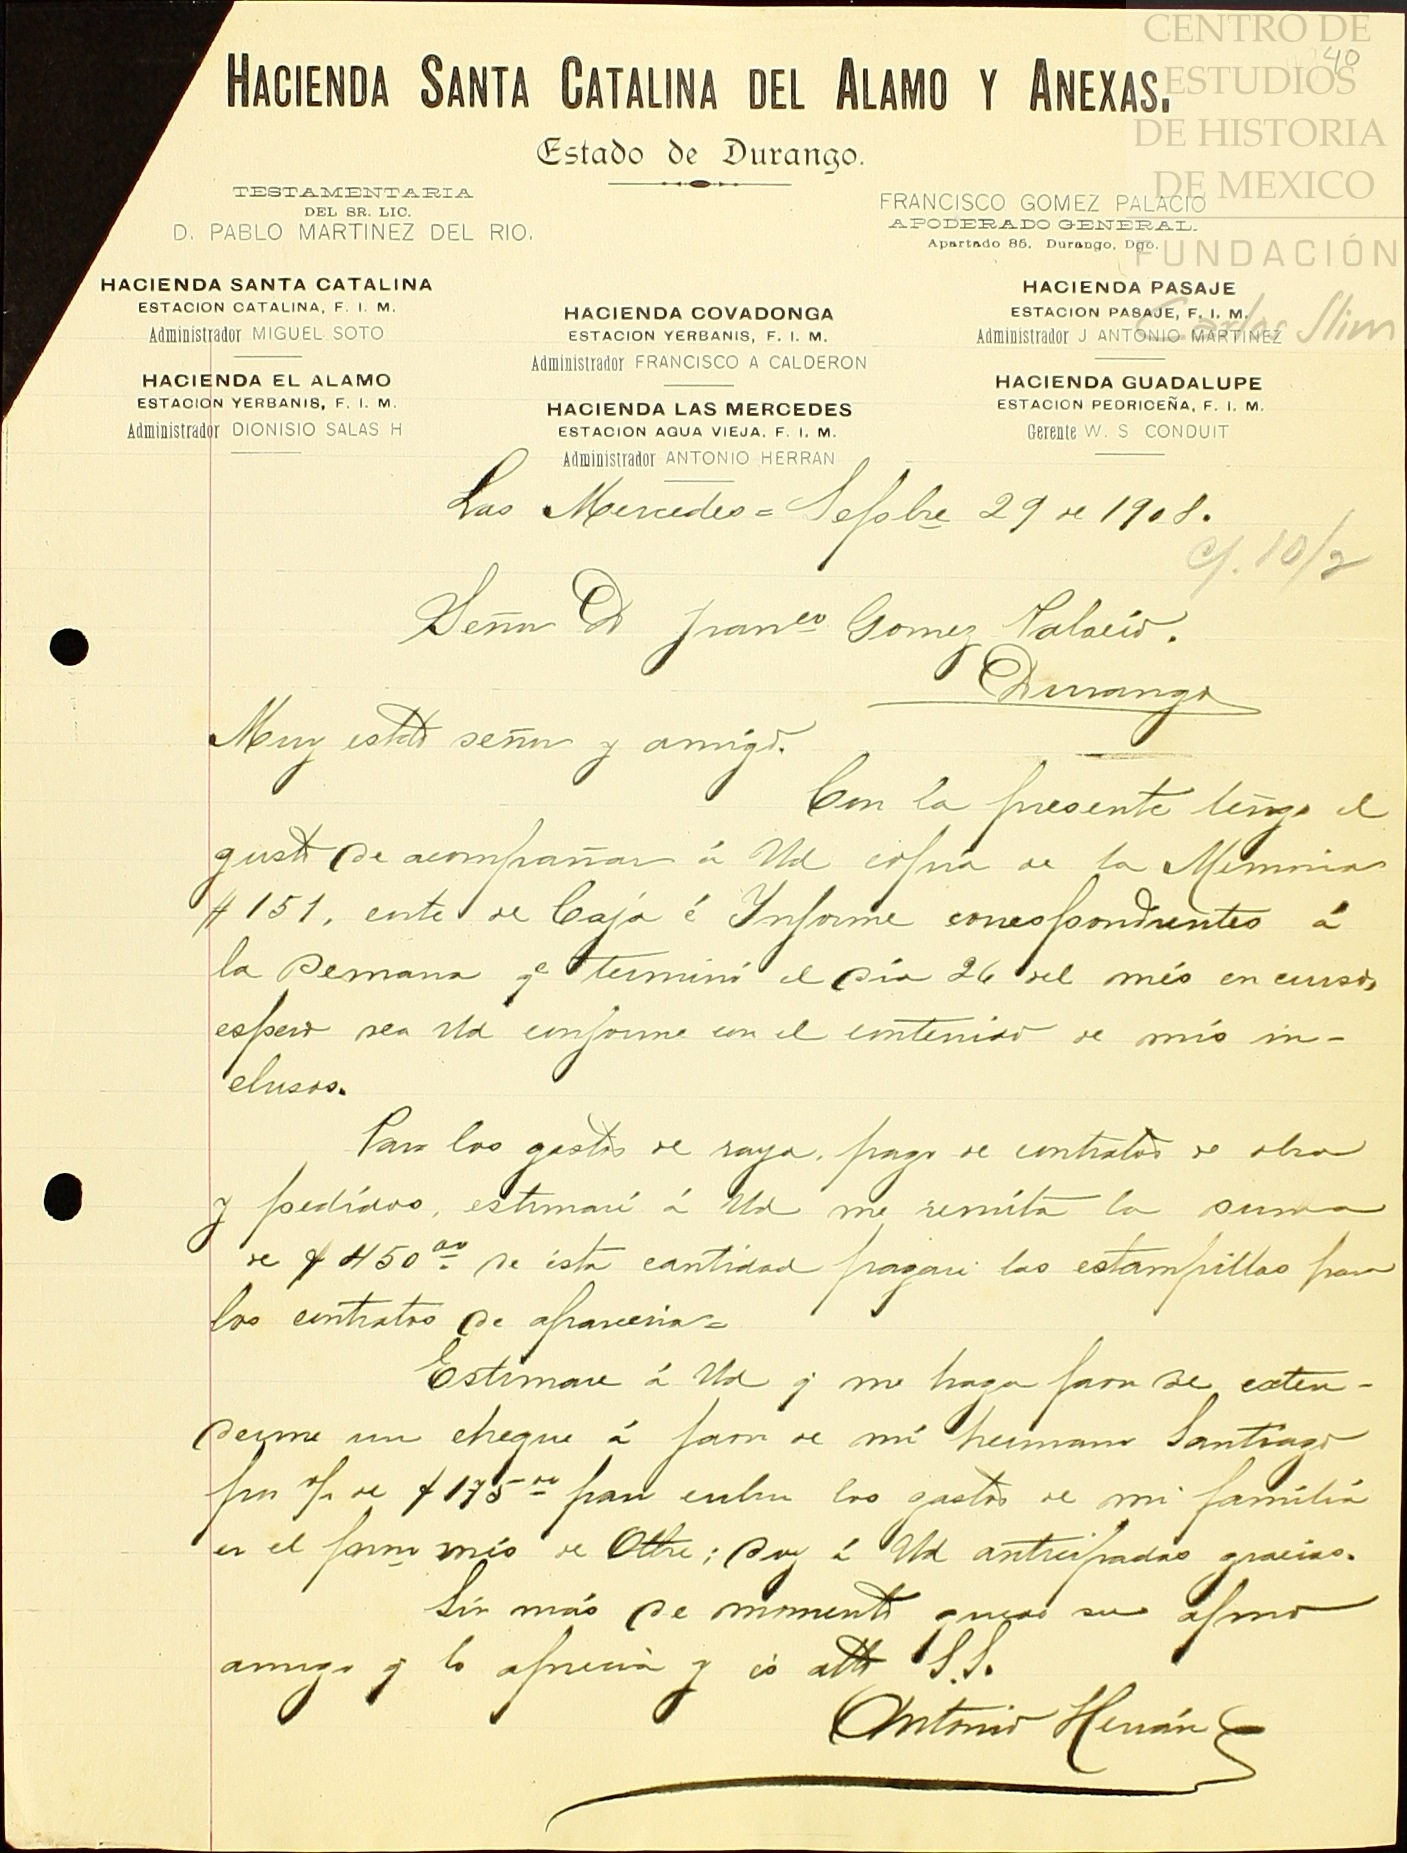 CENTRO DE
ESTUDIOS
DE HISTORIA
DE MEXICO
FUNDACIÓN
Carlos Slim
40
HACIENDA SANTA CATALINA DEL ALAMO Y ANEXAS.
Estado de Durango.
TESTAMENTARIA
DEL SR. LIC.
D. PABLO MARTINEZ DEL RIO.
FRANCISCO GOMEZ PALACIO
APODERADO GENERAL.
Apartado 85. Durango, Dgo.
HACIENDA SANTA CATALINA
ESTACION CATALINA, F. I. M.
Administrador MIGUEL SOTO
HACIENDA EL ALAMO
ESTACION YERBANIS, F. I. M.
Administrador DIONISIO SALAS H
HACIENDA COVADONGA
ESTACION YERBANIS, F. I. M.
Administrador FRANCISCO A CALDERON
HACIENDA LAS MERCEDES
ESTACION AGUA VIEJA, F. I. M.
Administrador ANTONIO HERRAN
HACIENDA PASAJE
ESTACION PASAJE, F. I. M.
Administrador J ANTONIO MARTINEZ
HACIENDA GUADALUPE
ESTACION PEDRICEÑA, F. I. M.
Gerente W. S CONDUIT
Las Mercedes = Sepbre 29 de 1908.
c/. 10/2
Señor D Franco Gomez Palacio.
Durango
Muy estdo señor y amigo.
Con la presente tengo el
gusto de acompañar á Ud copia de la Memoria
# 151, corte de Caja é Informe correspondientes á
la semana qe terminó el día 26 del més en curso,
espero sea Ud conforme con el contenido de mis in-
clusos.
Para los gastos de raya, pago de contratos de obra
y pedidos, estimaré á Ud me remita la suma
de $ 450 00 de ésta cantidad pagaré las estampillas para
los contratos de aparceria =
Estimare á Ud q me haga favor de exten-
derme un cheque á favor de mi hermano Santiago
por v/ de $ 175 00 para cubrir los gastos de mi familia
en el próxmo més de Otbre; doy á Ud anticipadas gracias.
Sin más de momento quedo su afmo
amigo q lo aprecia y es atto S.S.
Antonio Herrán